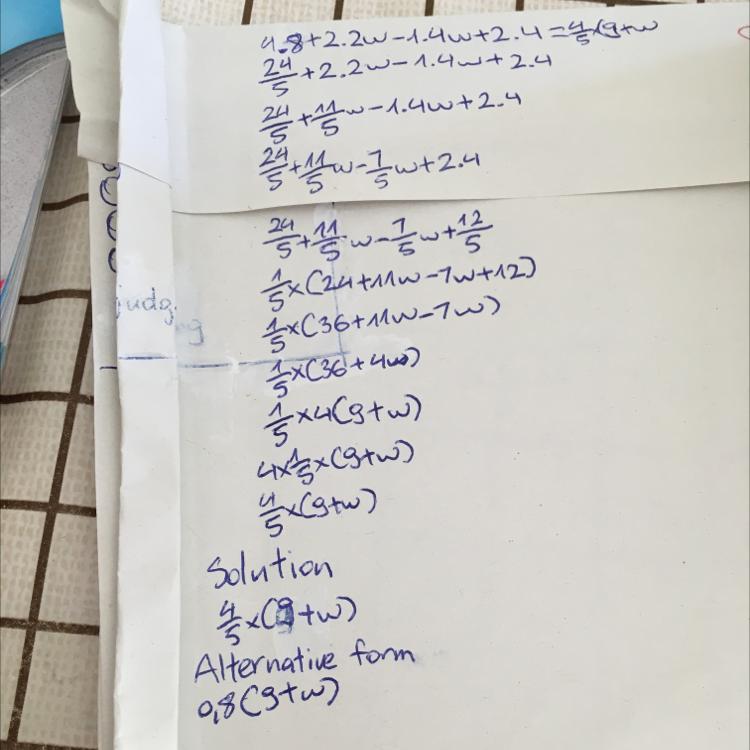 4.8+2.2w-1.4w+2.4=4/5×(9+w
24/5+2.2w-1.4w+2.4
24/5+11/5w-1.4w+2.4
24/5+11/5w-7/5w+2.4
24/5+11/5w-7/5w+12/5
1/5×(24+11w-7w+12)
judg
1/5×(36+11w-7w)
1/5×(36+4w)
1/5×4(9+w)
4×1/5×(9+w)
4/5×(9+w)
Solution
4/5×(9+w)
Alternative form
0,8(9+w)